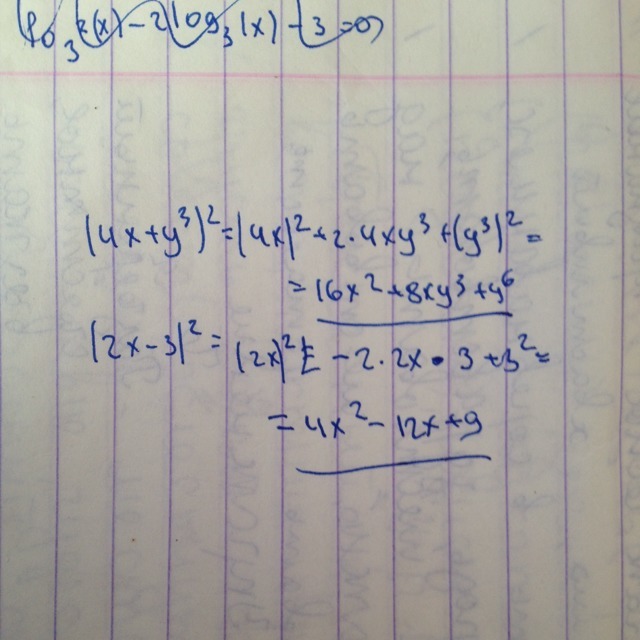 log₃²(x)-2log₃(x)-3=0
(4x+y³)²=(4x)²+2·4xy³+(y³)²=
=16x²+8xy³+y⁶
(2x-3)²=(2x)² -2·2x·3+3²=
=4x²-12x+9